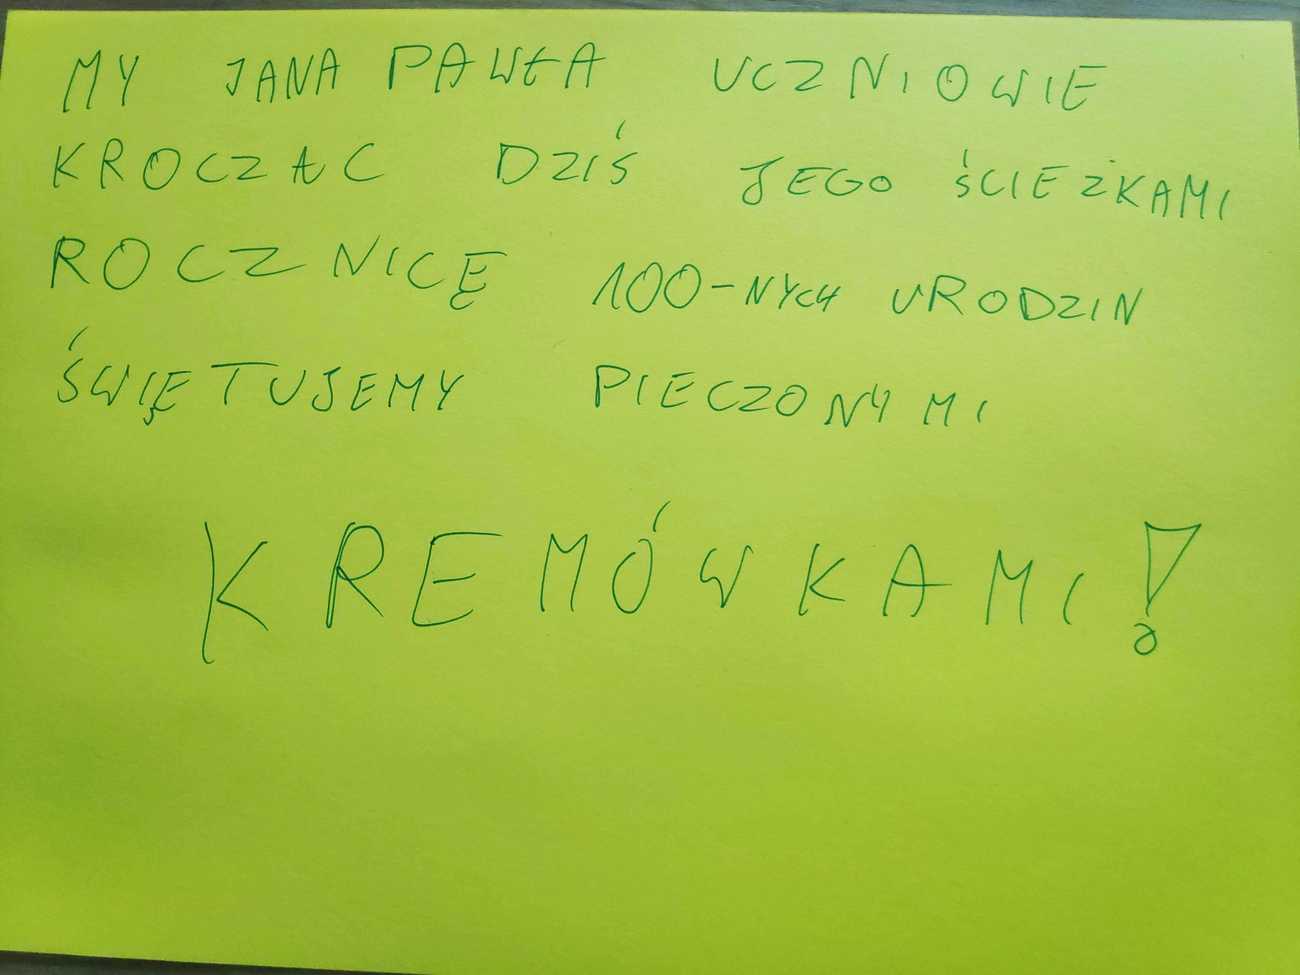 MY JANA PAWŁA UCZNIOWIE
KROCZĄC DZIŚ JEGO ŚCIEŻKAMI
ROCZNICĘ 100-NYCH URODZIN
ŚWIĘTUJEMY PIECZONYMI
KREMÓWKAMI!